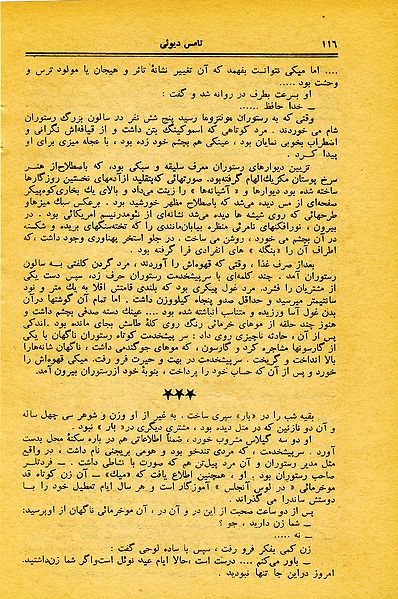 ۱۱۶
تامس دیوئی
.... اما میکی نتوانست بفهمد که آن تغییر نشانهٔ تاثر و هیجان یا مولود ترس و
وحشت بود .....
او بسرعت بطرف در روانه شد و گفت :
ــ خدا حافظ .....
وقتی که به رستوران مونتزوما رسید پنج شش نفر در سالون بزرگ رستوران
شام می خوردند . مرد کوتاهی که اسموکینگ بتن داشت و از قیافه‌اش نگرانی و
اضطراب بخوبی نمایان بود ، عینکی هم بچشم خود زده بود ، با عجله میزی برای او
پیدا کرد .
تزیین دیوارهای رستوران معرف سلیقه و سبکی بود، که باصطلاح‌از هنر
سرخ پوستان مکزیک الهام گرفته‌بود. صورتهائی که‌بتقلید ازآدمهای نخستین روزگارها
ساخته شده بود دیوارها و « آشیانه‌ها » را زینت می‌داد و بالای یك بخاری‌کوه‌پیکر
صفحه‌ای از مس دیده می‌شد که باصطلاح مظهر خورشید بود . برعکس سبك میزهاو
طرحهائی که روی شیشه ها دیده می‌شد نشانه‌ای از مدرنیسم امریکائی بود . در
بیرون ، نورافکنهای نامرئی منظره بیابان‌مانندی را که تخته‌سنگهای بریده و شکسته
در آن بچشم می خورد ، روشن می ساخت . در جلو استخر پهناوری وجود داشت، که
اطراف آن را «بنگله » های انفرادی فرا گرفته بود .
بعداز صرف غذا ، وقتی که قهوه‌اش را آوردند ، مرد گردن کلفتی به سالون
رستوران آمد . چند کلمه‌ای با سرپیشخدمت رستوران حرف زد، سپس دست یکی
از مشتریان را فشرد. مرد غول پیکری بود که بلندی قامتش اقلا به یك متر و نود
سانتیمتر میرسید و حداقل صدو پنجاه کیلووزن داشت . اما تمام آن گوشتها درآن
بدن غول آسا ورزیده و متناسب انباشته شده بود .... عینك دسته صدفی بچشم داشت و
هنوز چند حلقه از موهای خرمائی رنگ روی کلهٔ طاسش بجای مانده بود. اندکی
پس از آن ، حادثه ناچیزی روی داد : سر پیشخدمت کوتاه رستوران ناگهان با یکی
از گارسونها مشاجره کرد و گارسون، که موهای جوگندمی داشت ، ناگهان شانه‌هارا
بالا انداخت و گریخت . سرپیشخدمت در بهت و حیرت فرو رفت. میکی قهوه‌اش را
خورد و پس از آن که حساب خود را پرداخت ، بنوبهٔ خود ازرستوران بیرون آمد.
★★★
بقیه شب را در «بار» سپری ساخت . به غیر از او وزن و شوهر سی چهل ساله
و آن دو نازنین که در متل دیده بود، مشتری دیگری در« بار » نبود .
او دو سه گیلاس مشروب خورد ، ضمناً اطلاعاتی هم در باره سکنهٔ محل بدست
آورد . سرپیشخدمت ، که مردی تندخو بود و هومی بریجنی نام داشت ، در واقع
مثل مدیر رستوران و آن مرد پیل‌تن هم که صورت با نشاطی داشت ــ فردتلر
صاحب رستوران بود . او ، همچنین اطلاع یافت که «میك» ــ آن زن کوتاه قد
موخرمائی « در لوس آنجلس » آموزگار است و هر سال ایام تعطیل خود را با
دوستش ساندرا می گذراند .
پس از دو ساعت صحبت از این در و آن در ، آن موخرمائی ناگهان از اوپرسید:
ــ شما زن دارید ، جو ؟
ــ نه .....
زن کمی بفکر فرو رفت ، سپس با ساده لوحی گفت :
ــ باور می‌کنم .... درست است ،حالا ایام عید نوئل است‌واگر شما زن‌داشتید.
امروز دراین جا تنها نبودید .